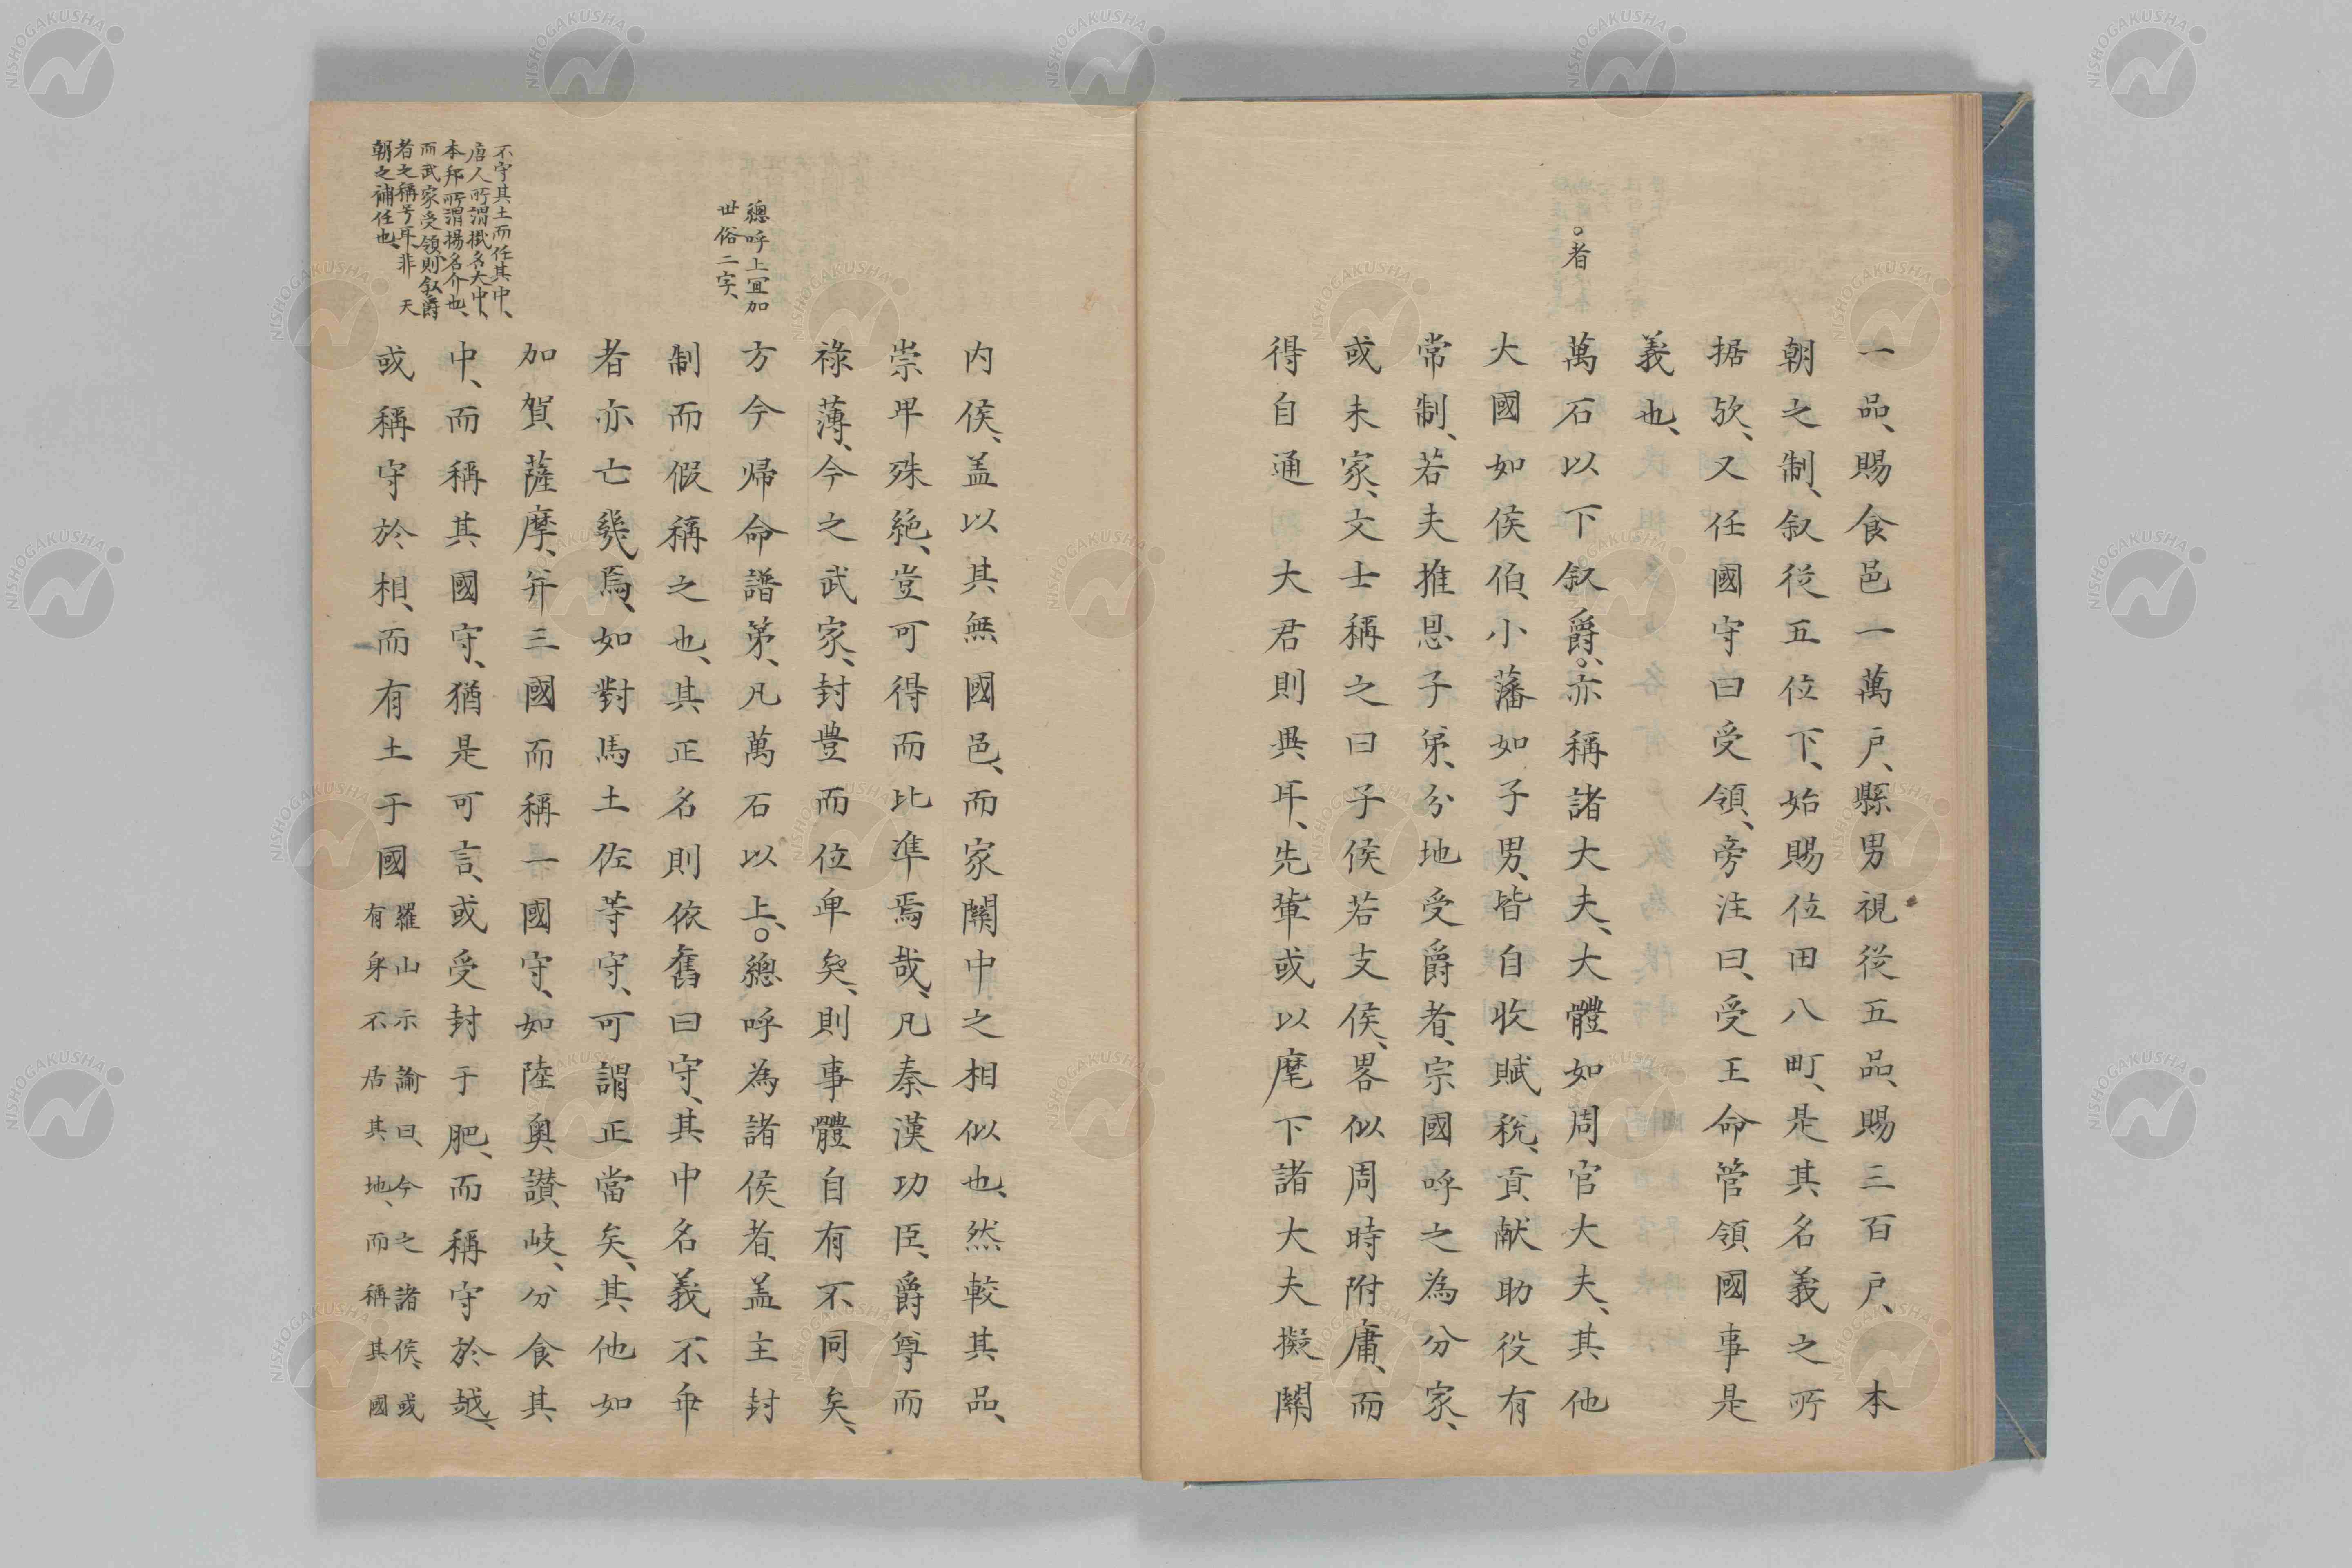 。者
一品、賜食邑一萬戸、縣男視從五品、賜三百戸、本
朝之制、叙從五位下、始賜位田八町、是其名義之所
据欤、又任國守曰受領、旁注曰、受王命管領國事是
義也、
萬石以下叙爵、。亦稱諸大夫、大體如周官大夫、其他
大國如侯伯、小藩如子男、皆自收賦税、貢献助役有
常制、若夫推恩子弟、分地受爵者、宗國呼之為分家、
或未家、文士稱之曰子侯若支侯、畧似周時附庸、而
得自通 大君則異耳、先輩或以麾下諸大夫擬關
總呼上宜加
世俗二字、
不守其土而任其中、
唐人所謂掛名大中、
本邦所謂揚名介也、
而武家受領、則叙爵
者之稱号耳、非 天
朝之補任也、
内侯、盖以其無國邑、而家關中之相似也、然較其品、
崇卑殊絶、豈可得而比準焉哉、凡秦漢功臣、爵尊而
祿薄、今之武家、封豊而位卑矣、則事體自有不同矣、
方今帰命譜第、凡萬石以上、。總呼為諸侯者、盖主封
制而假稱之也、其正名則依舊曰守、其中名義不毋
者亦亡幾焉、如對馬土佐等守、可謂正當矣、其他如
加賀薩摩、并三國而稱一國守、如陸奥讃岐、分食其
中、而稱其國守、猶是可言、或受封于肥、而稱守於越、
或稱守於相、而有土于國羅山示諭曰、今之諸侯、或
有身不居其地、而稱其國
NISHOGAKUSHA